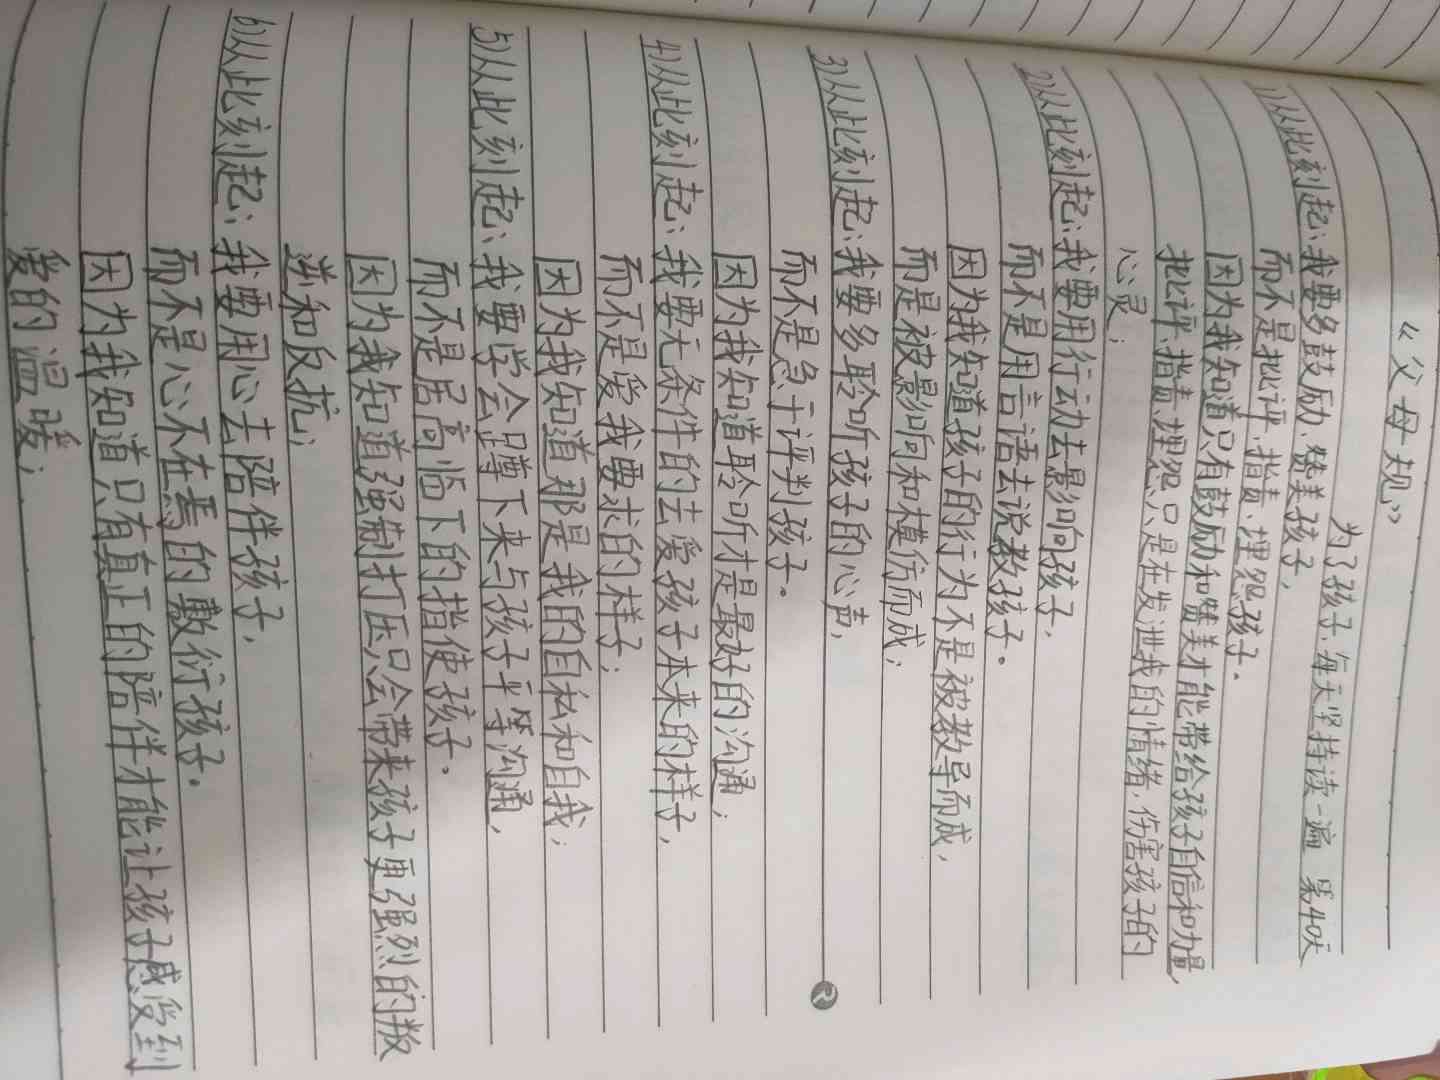 《父母规》
为了孩子、每天坚持读一遍 第40天
1)从此刻起:我要多鼓励、赞美孩子,
而不是批评、指责、埋怨孩子.
因为我知道只有鼓励和赞美才能带给孩子自信和力量,
批评、指责、埋怨只是在发泄我的情绪,伤害孩子的
心灵;
2)从此刻起:我要用行动去影响孩子,
而不是用言语去说教孩子。
因为我知道孩子的行为不是被教导而成,
而是被影响和模仿而成;
3)从此刻起:我要多聆听孩子的心声,
而不是急于评判孩子。
因为我知道聆听才是最好的沟通;
4)从此刻起:我要无条件的去爱孩子本来的样子,
而不是爱我要求的样子;
因为我知道那是我的自私和自我;
5)从此刻起:我要学会蹲下来与孩子平等沟通,
而不是居高临下的指使孩子.
因为我知道强制打压只会带来孩子更强烈的叛
逆和反抗;
6)从此刻起:我要用心去陪伴孩子,
而不是心不在焉的敷衍孩子.
因为我知道只有真正的陪伴才能让孩子感受到
爱的温暖;
R